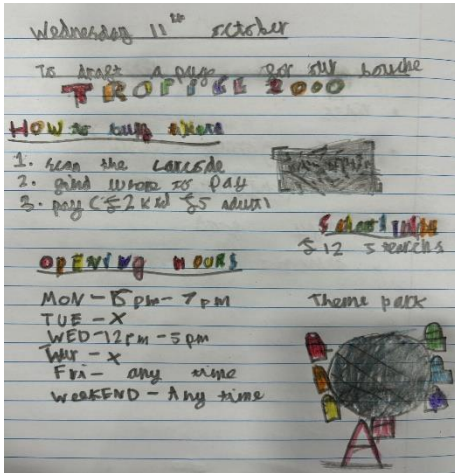 Wednesday 11th october
To draft a page for our
TROPICL 2000
HOW to buy
1. scan the
2. find where to pay
3. pay (£2 kid £5 adult)
£12 5 searchs
OPENING HOURS
MON – 5pm – 7pm
TUE – X
WED – 12pm – 5pm
Thur – X
Fri – any time
WeeKEND – Any time
Theme park